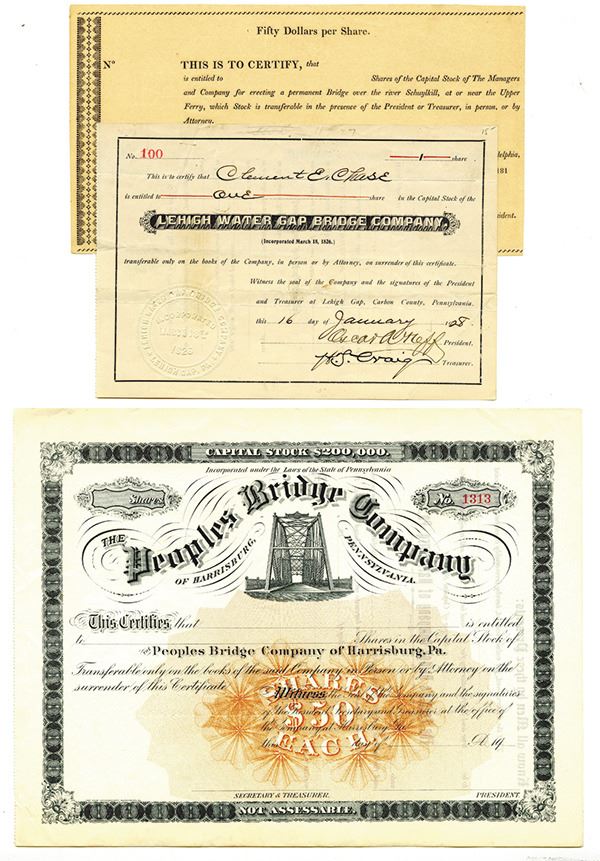 Fifty Dollars per Share.
No THIS IS TO CERTIFY, that
is entitled to Shares of the Capital Stock of The Managers
and Company for erecting a permanent Bridge over the river Schuylkill, at or near the Upper
Ferry, which Stock is transferable in the presence of the President or Treasurer, in person, or by
Attorney.
delphia,
181
sident.
15
No. 100 1 share
This is to certify that Clement E. Chase
is entitled to ONE share in the Capital Stock of the
LEHIGH WATER GAP BRIDGE COMPANY
(Incorporated March 18, 1826.)
transferable only on the books of the Company, in person or by Attorney, on surrender of this certificate.
Witness the seal of the Company and the signatures of the President
and Treasurer at Lehigh Gap, Carbon County, Pennsylvania.
this 16 day of January 1928
Oscar A. Neff President.
H.S. Craig Treasurer.
CAPITAL STOCK $200,000.
Incorporated under the Laws of the State of Pennsylvania
Shares No. 1313
THE Peoples Bridge Company
OF HARRISBURG, PENNSYLVANIA.
This Certifies that is entitled
to Shares in the Capital Stock of
The Peoples Bridge Company of Harrisburg, Pa.
Transferable only on the books of the said Company in Person or by Attorney on the
surrender of this Certificate
Witness the Seal of the Company and the signatures
of the President, Secretary and Treasurer at the office of
the Company at Harrisburg, Pa.
this day of A.D. 19
SHARES
$50
EACH
SECRETARY & TREASURER. PRESIDENT.
NOT ASSESSABLE.